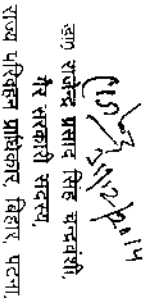 डा० राजेन्द्र प्रसाद सिंह चन्द्रवंशी,
गैर सरकारी सदस्य,
राज्य परिवहन प्राधिकार, बिहार, पटना.